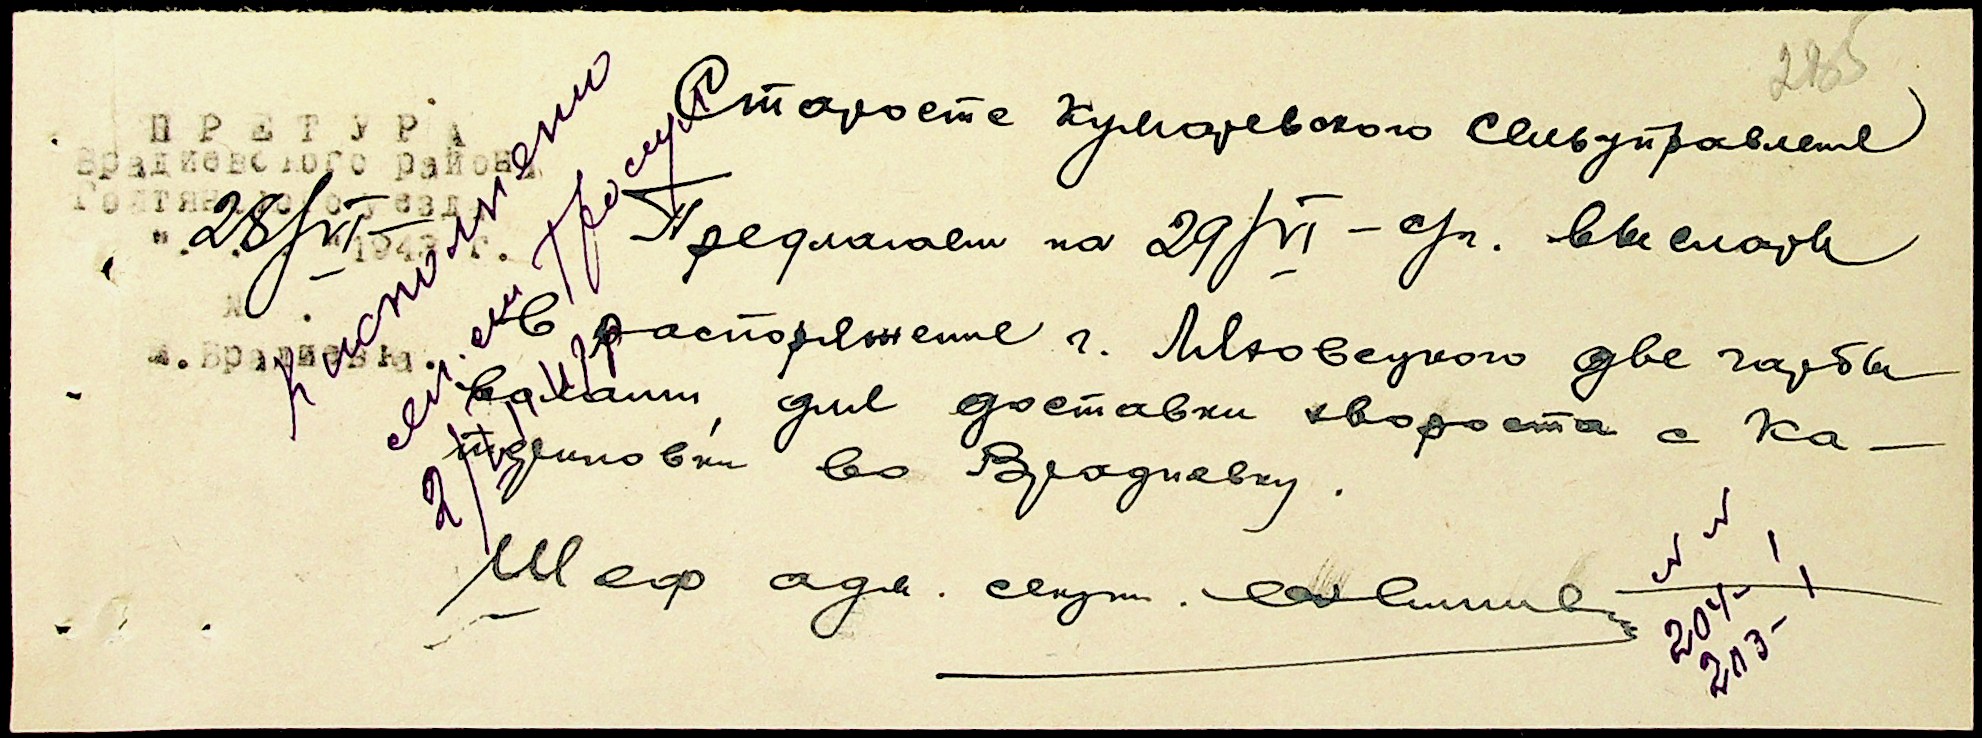 285
ПРЕТУРА
Врадиевского района
Голтянского уезда
28/VI 1943 г.
м. Врадиевка.
Старосте Кумаревского Сельуправления
Предлагаем на 29/VI – с/г. выслать
в распоряжение г. две гарбы
волами, для доставки хвороста с Ка-
во Врадиевку.
Шеф адм. секции.
К исполнению
2/VII
№ №
204 – 1
213 – 1